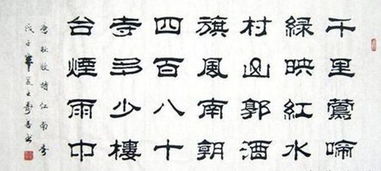 千里鶯啼
綠映紅水
村山郭酒
旗風南朝
四百八十
寺多少樓
台煙雨中
唐杜牧詩江南春
戊子夏